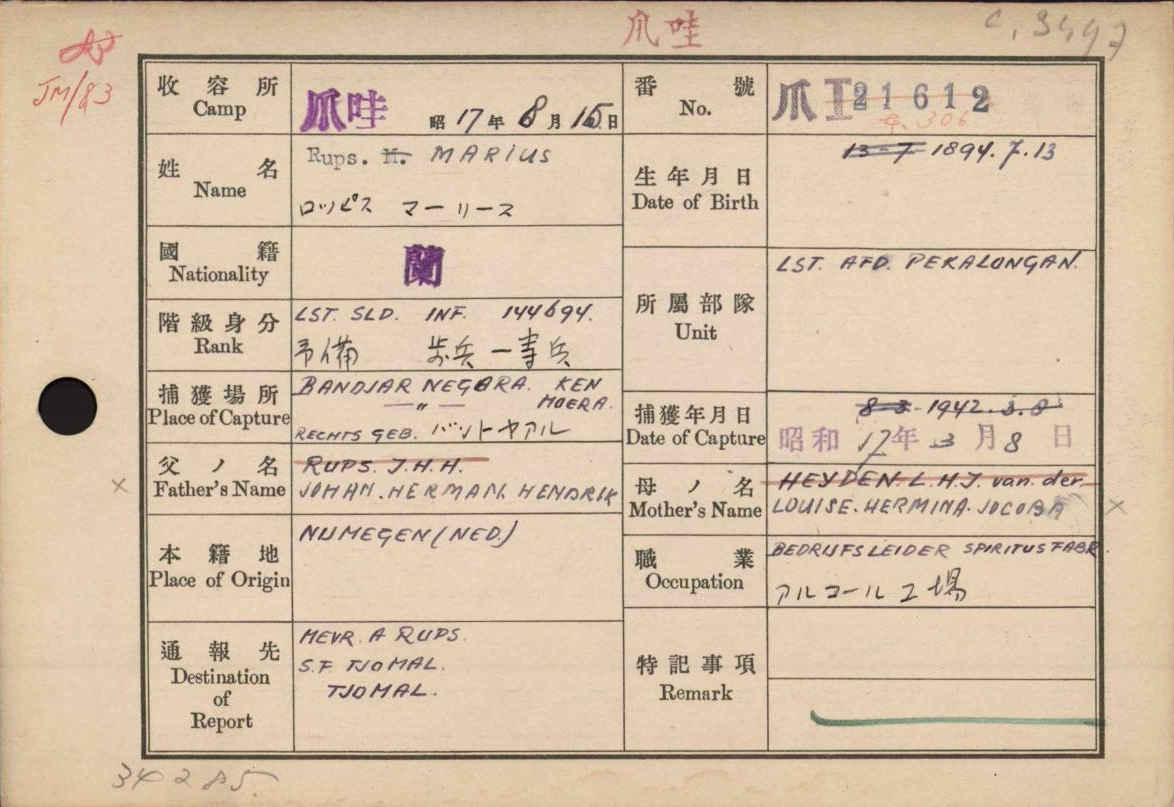 爪哇
C. 3497
JM/83
收容所
Camp
爪哇
昭 17 年 8 月 15 日
番號
No.
爪 I 21612
G. 306
姓名
Name
Rups. M. MARIUS
ロッピス マーリース
生年月日
Date of Birth
13-7 1894.7.13
國籍
Nationality
蘭
所屬部隊
Unit
LST. AFD. PEKALONGAN.
階級身分
Rank
LST. SLD. INF. 144694.
予備 歩兵一等兵
捕獲場所
Place of Capture
BANDJAR NEGARA. KEN
—〃— MOERA.
RECHTS GEB. バットヤアル
捕獲年月日
Date of Capture
8-3-1942.3.8
昭和 17 年 3 月 8 日
父ノ名
Father's Name
RUPS. J.H.H.
JOHAN. HERMAN. HENDRIK
母ノ名
Mother's Name
HEYDEN L.H.J. van der.
LOUISE. HERMINA. JOCOBA
本籍地
Place of Origin
NIJMEGEN (NED.)
職業
Occupation
BEDRIJFSLEIDER SPIRITUSFABR.
アルコール工場
通報先
Destination
of
Report
MEVR. A RUPS.
S.F TJOMAL.
TJOMAL.
特記事項
Remark
34285